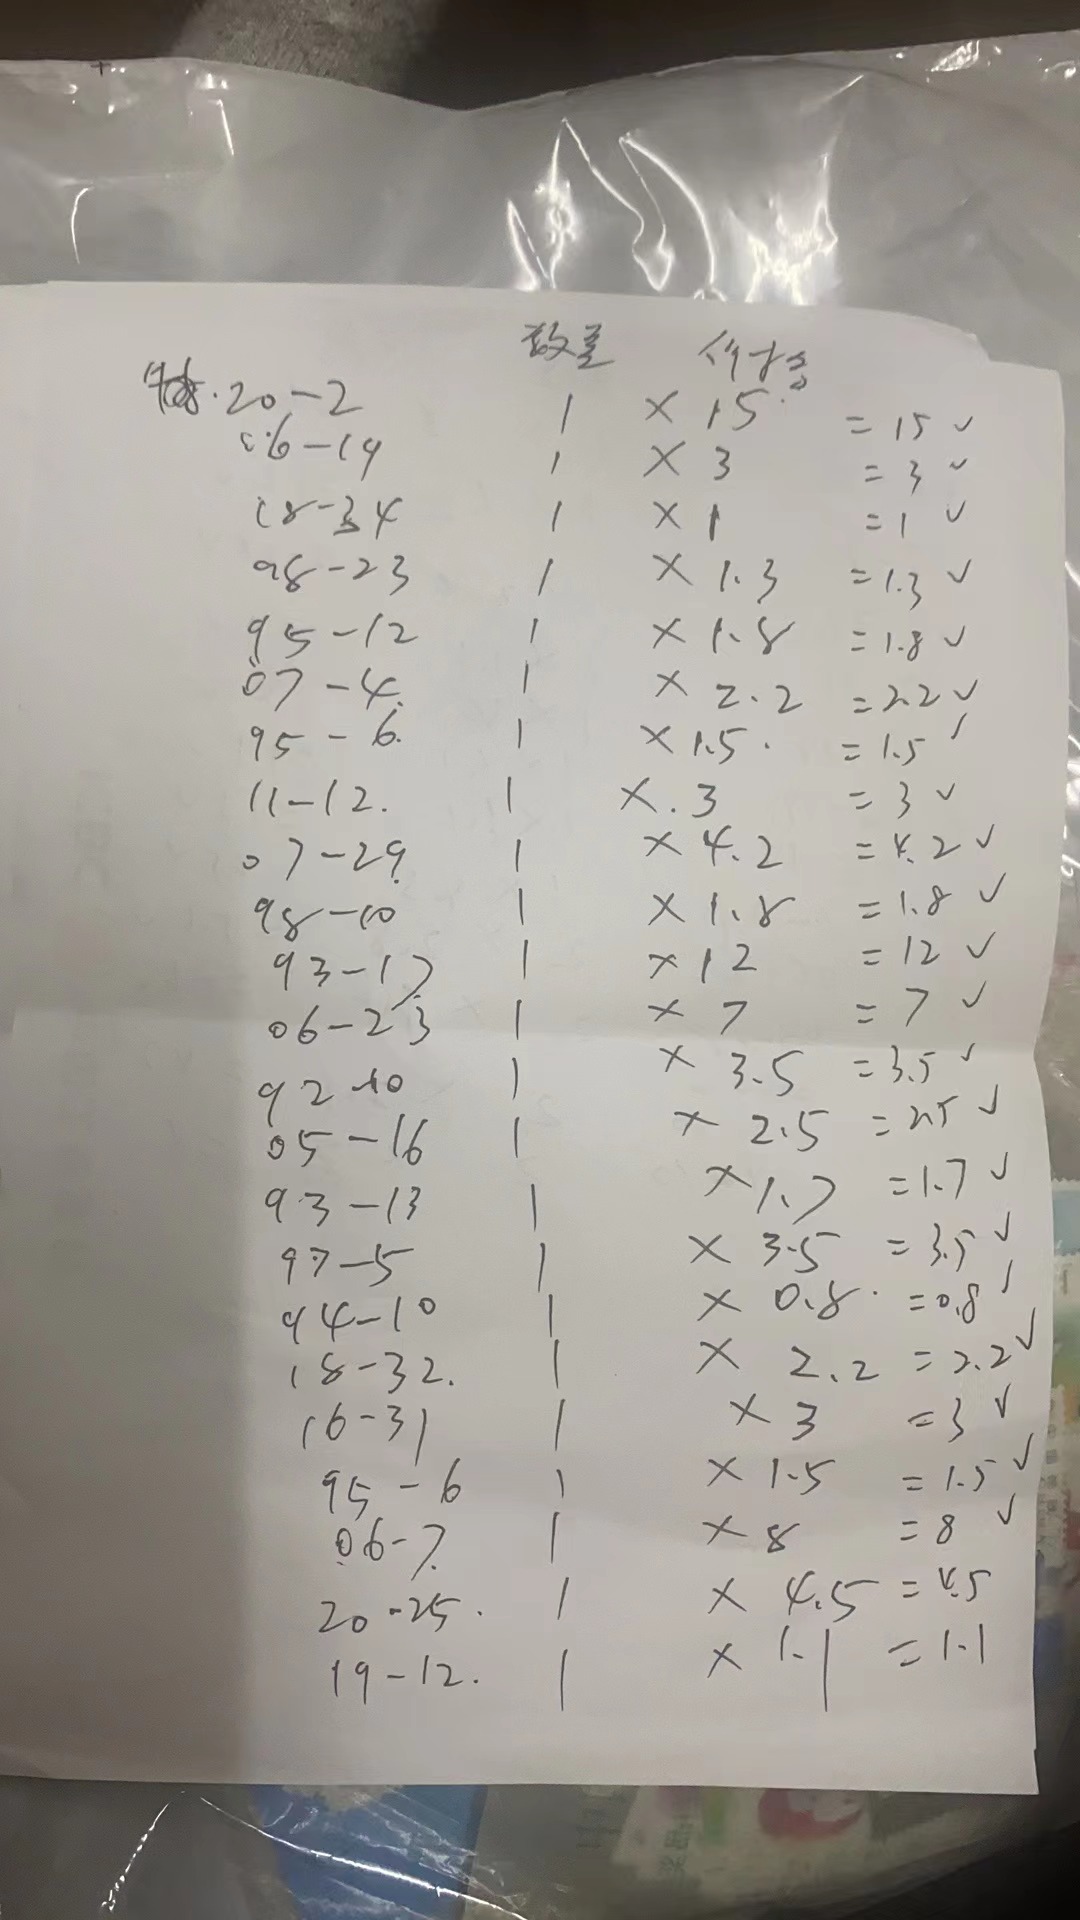 数量 价格
20-2 1 × 15 = 15 ✓
06-19 1 × 3 = 3 ✓
18-34 1 × 1 = 1 ✓
98-23 1 × 1.3 = 1.3 ✓
95-12 1 × 1.8 = 1.8 ✓
07-4. 1 × 2.2 = 2.2 ✓
95-6. 1 × 1.5. = 1.5 ✓
11-12. 1 ×.3 = 3 ✓
07-29 1 × 4.2 = 4.2 ✓
98-10 1 × 1.8 = 1.8 ✓
93-17 1 × 12 = 12 ✓
06-23 1 × 7 = 7 ✓
92-10 1 × 3.5 = 3.5 ✓
05-16 1 × 2.5 = 2.5 ✓
93-13 1 × 1.7 = 1.7 ✓
97-5 1 × 3.5 = 3.5 ✓
94-10 1 × 0.8. = 0.8 ✓
18-32. 1 × 2.2 = 2.2 ✓
16-31 1 × 3 = 3 ✓
95-6 1 × 1.5 = 1.5 ✓
06-7. 1 × 8 = 8 ✓
20-25. 1 × 4.5 = 4.5
19-12. 1 × 1.1 = 1.1